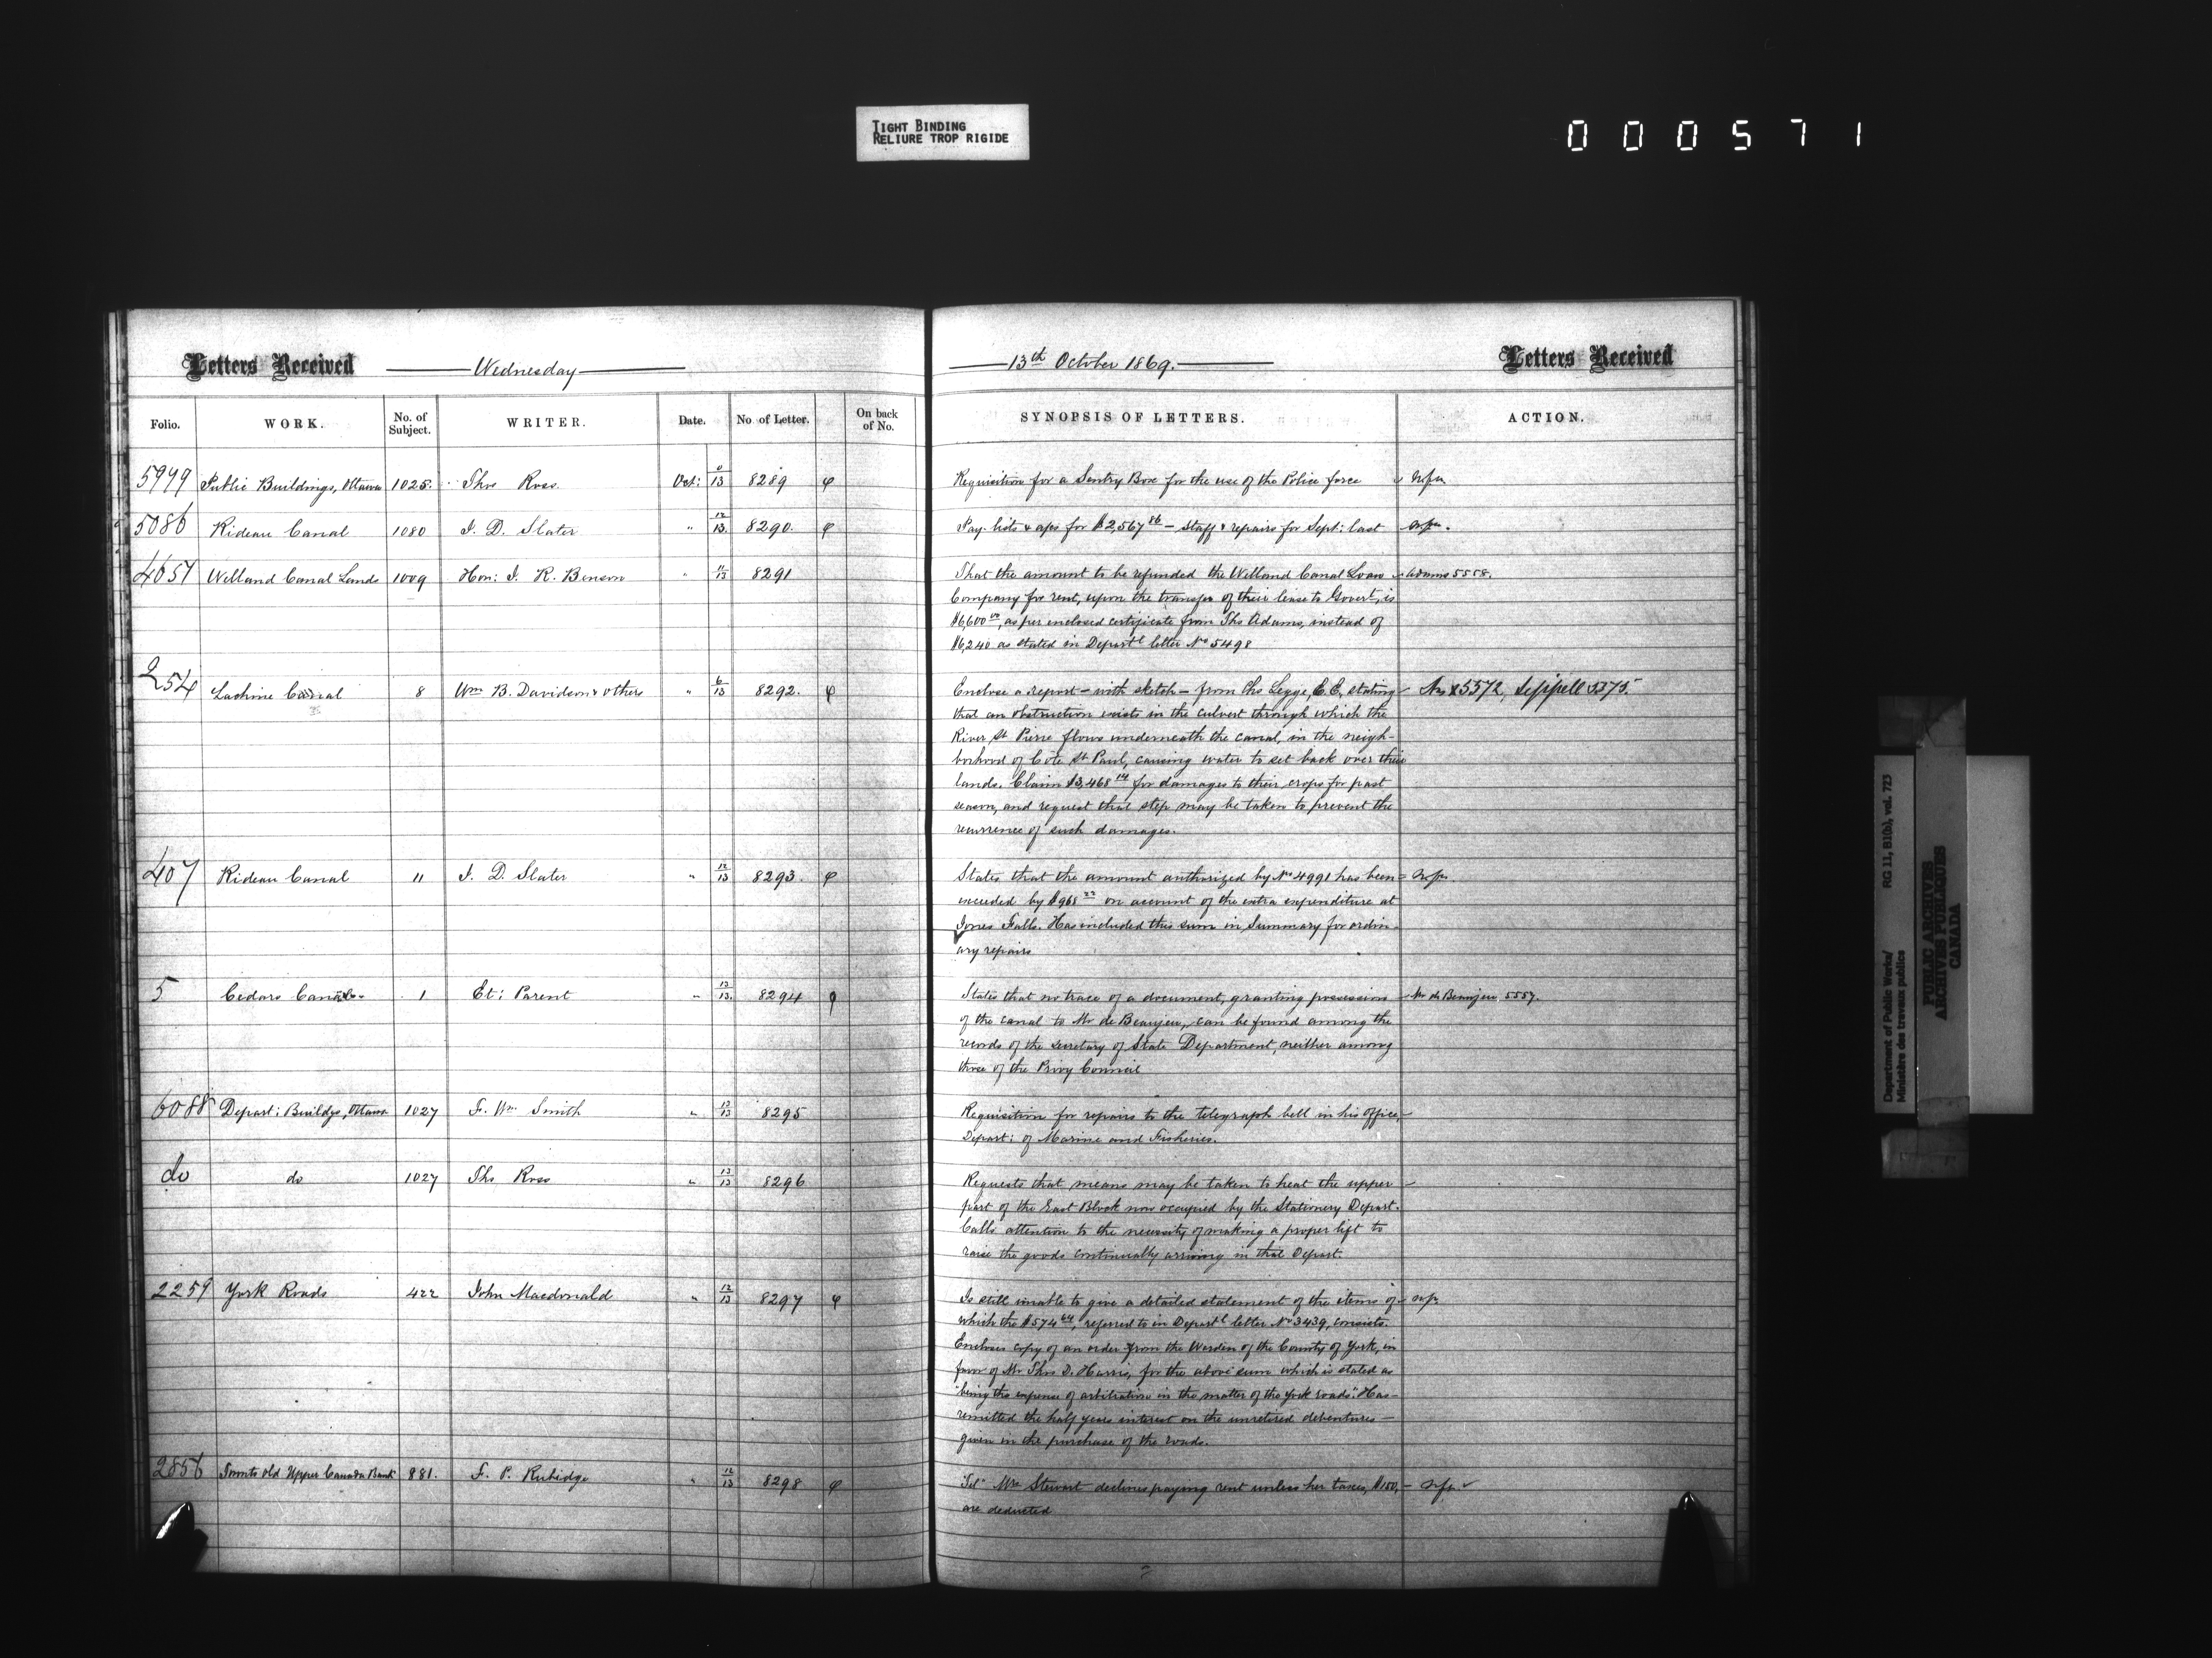 TIGHT BINDING
RELIURE TROP RIGIDE
000571
Letters Received
Wednesday
13th October 1869.
Letters Received
Folio. WORK. No. of Subject. WRITER. Date. No. of Letter. On back of No. SYNOPSIS OF LETTERS. ACTION.
5999 Public Buildings, Ottawa 1025. Thos Ross Oct: 13 8289 Requisition for a Sentry Box for the use of the Police force
5086 Rideau Canal 1080 J. D. Slater " 12/13 8290. Pay-lists & a/cs for $2,567 86 – staff & repairs for Sept: last
4657 Welland Canal Lands 1009 Hon: J. R. Benson " 11/13 8291 That the amount to be refunded the Welland Canal Loan Adams 5558.
Company for rent, upon the transfer of their lease to Govert, is
$6,600 00, as per enclosed certificate from Ths Adams, instead of
$6,240 as stated in Departl letter No 5498
254 Lachine Canal 8 Wm B. Davidson & others " 6/13 8292. Enclose a report – with sketch – from Chs Legge, C.E, stating 5572, Sippell 5375.
that an obstruction exists in the culvert through which the
River St Pierre flows underneath the canal, in the neigh-
borhood of Côte St Paul, causing water to set back over their
lands. Claim $3,468 14 for damages to their crops for past
season, and request that step may be taken to prevent the
recurrence of such damages.
407 Rideau Canal 11 J. D. Slater " 12/13 8293. States that the amount authorized by No 4991 has been
exceeded by $968 22 on account of the extra expenditure at
Jones Falls. Has included this sum in Summary for ordin-
ary repairs
5 Cedars Canal 1 Et: Parent " 12/13. 8294 States that no trace of a document, granting possession Mr de Beaujeu, 5557.
of the canal to Mr de Beaujeu, can be found among the
records of the Secretary of State Department, neither among
those of the Privy Council
6088 Depart: Buildgs, Ottawa 1027 F. Wm Smith " 13/13 8295 Requisition for repairs to the telegraph bell in his office,
Depart: of Marine and Fisheries.
do do 1027 Ths Ross " 13/13 8296 Requests that means may be taken to heat the upper
part of the East Block now occupied by the Stationery Depart.
Calls attention to the necessity of making a proper lift to
raise the goods continually arriving in that Depart:
2259 York Roads 422 John Macdonald " 12/13 8297 Is still unable to give a detailed statement of the items of
which the $574 64, referred to in Departl letter No 3439, consists.
Encloses copy of an order from the Warden of the County of York, in
favor of Mr Thos D. Harris, for the above sum which is stated as
"being the expense of arbitration in the matter of the York roads". Has
remitted the half years interest on the unretired debentures
given in the purchase of the roads.
2856 Toronto old Upper Canada Bank 881. F. P. Rubidge " 12/13 8298 "Tel" Mrs Stewart declines paying rent unless her taxes, $150,
are deducted
Department of Public Works/ RG 11, B1(b), vol. 723
Ministère des travaux publics
PUBLIC ARCHIVES
ARCHIVES PUBLIQUES
CANADA